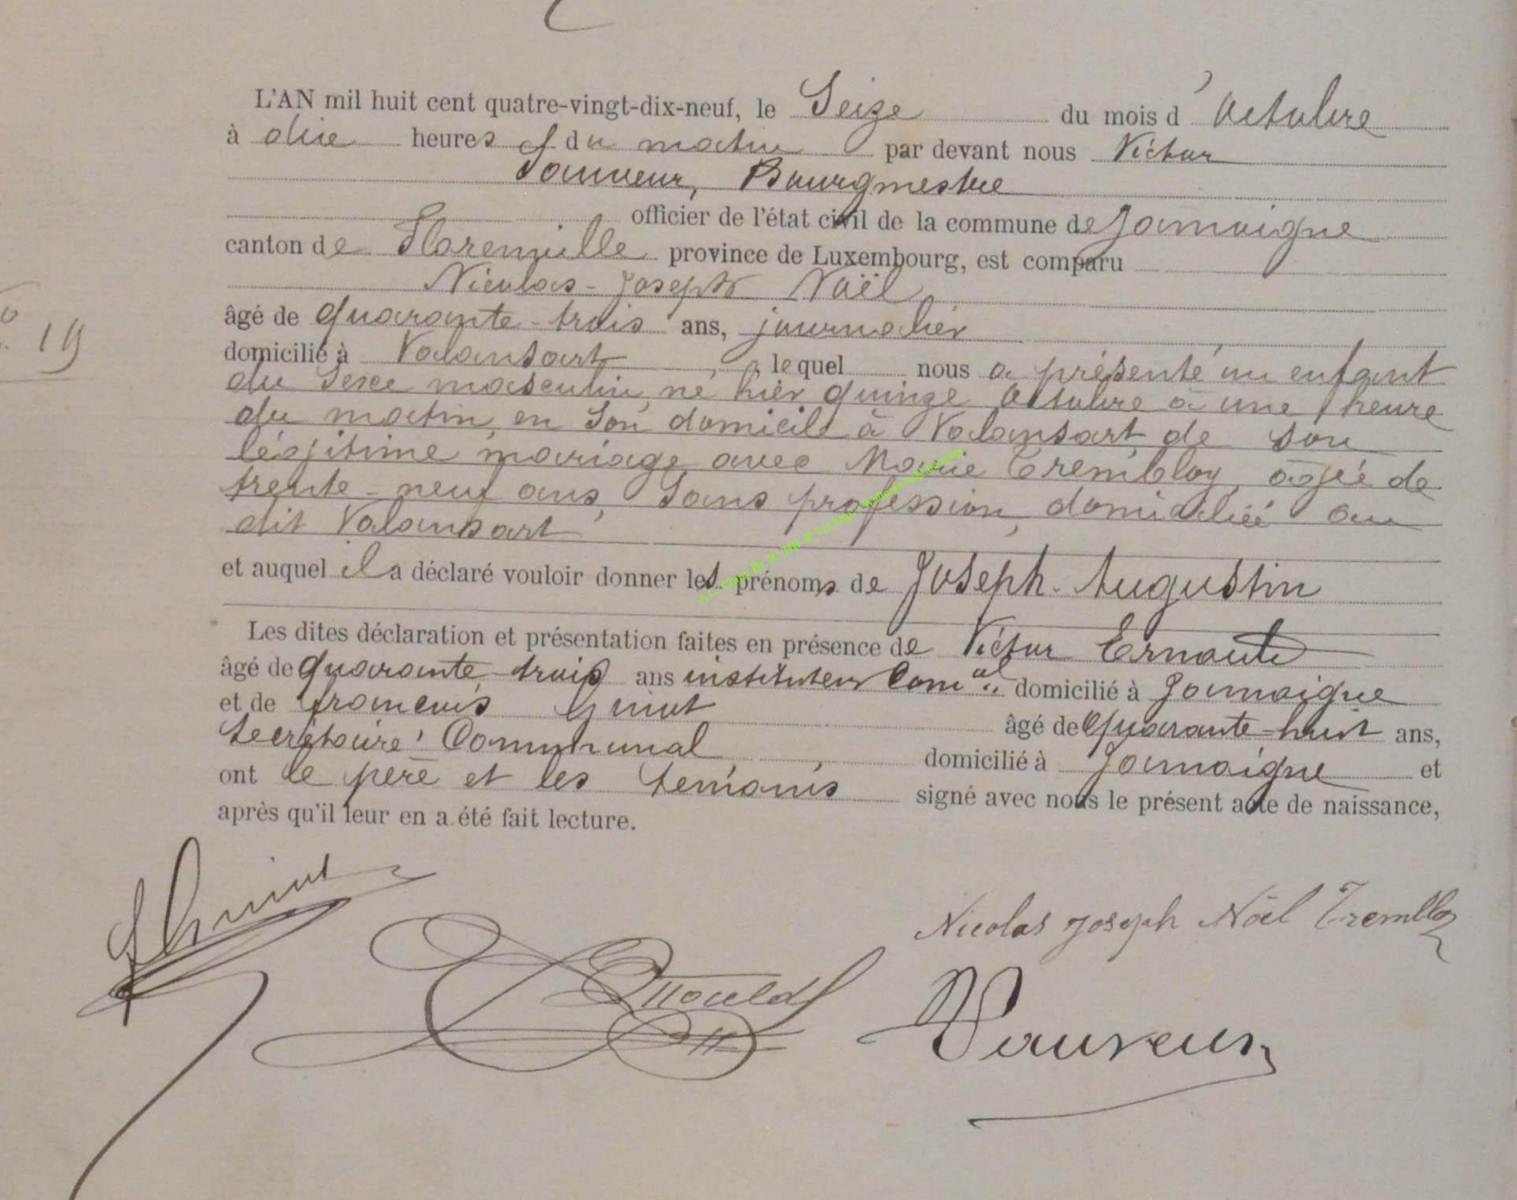 19
L'AN mil huit cent quatre-vingt-dix-neuf, le Seize du mois d'Octobre
à dix heures du matin par devant nous Victor
Sauveur, Bourgmestre
officier de l'état civil de la commune de Jamoigne
canton de Florenville province de Luxembourg, est comparu
Nicolas-Joseph Noël
âgé de quarante-trois ans, journalier
domicilié à Valansart, lequel nous a présenté un enfant
du sexe masculin, né hier quinze Octobre à une heure
du matin, en son domicile à Valansart, de son
légitime mariage avec Marie Trembloy, âgée de
trente-neuf ans, sans profession, domiciliée au
dit Valansart
et auquel il a déclaré vouloir donner les prénoms de Joseph-Augustin
Les dites déclaration et présentation faites en présence de Victor
âgé de quarante-trois ans instituteur Com.al domicilié à Jamoigne
et de François âgé de quarante-huit ans,
Secrétaire Communal domicilié à Jamoigne et
ont le père et les témoins signé avec nous le présent acte de naissance,
après qu'il leur en a été fait lecture.
Nicolas Joseph Nöel Trembloy
VSauveur